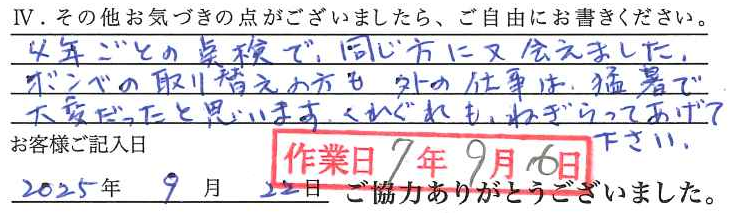 Ⅳ．その他お気づきの点がございましたら、ご自由にお書きください。
4年ごとの点検で、同じ方に又会えました。
ボンベの取り替えの方も外の仕事は、猛暑で
大変だったと思います。くれぐれも、ねぎらってあげて
下さい。
お客様ご記入日
作業日 7年 9月 6日
2025年 9月 22日 ご協力ありがとうございました。